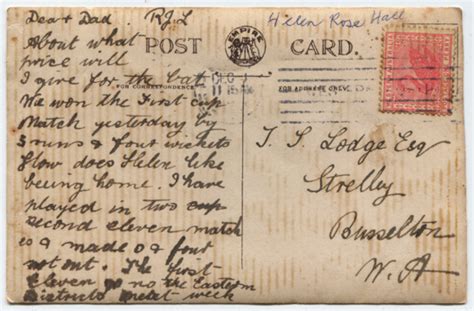 Dear Dad. R.J.L
About what
price will
I give for the bat
We won the First cup
Match yesterday by
5 runs & four wickets
How does Helen like
being home. I have
played in two cup
second eleven match
es & made 0 & four
not out. The first
eleven go no the Eastern
Districts next week
POST CARD.
EMPIRE
FOR CORRESPONDENCE
FOR ADDRESS ONLY
Helen Rose Hall
DEC
T. S. Lodge Esq
Strelley
Busselton
W. A